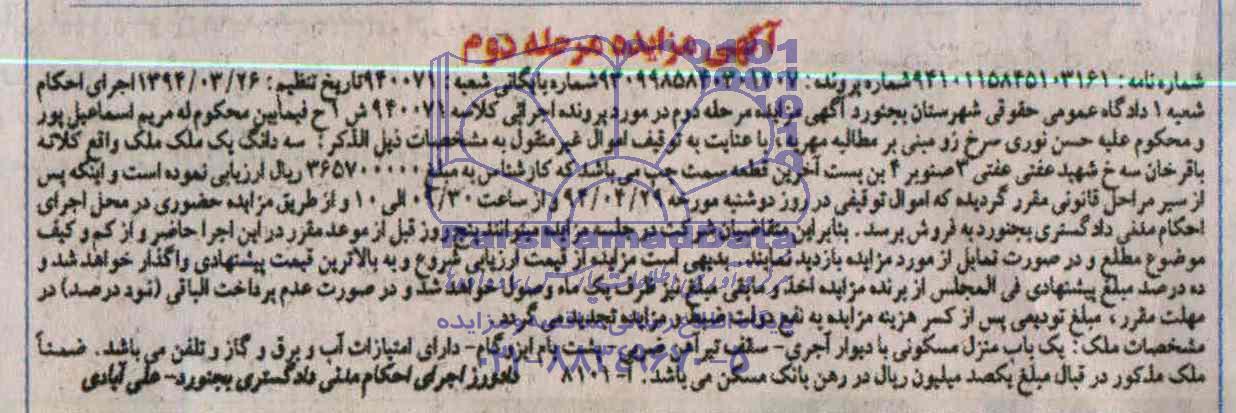 آگهی مزایده مرحله دوم
شماره نامه : ۹۴۱۰۱۱۱۵۸۴۵۱۰۳۱۶۱ شماره پرونده : شماره بایگانی شعبه : ۹۴۰۰۷۱ تاریخ تنظیم : ۱۳۹۴/۰۳/۲۶ اجرای احکام
شعبه ۱ دادگاه عمومی حقوقی شهرستان بجنورد آگهی مزایده مرحله دوم در مورد پرونده اجرائی کلاسه ۹۴۰۰۷۱ ش ۱ ح فیمابین محکوم له مریم اسماعیل پور
و محکوم علیه حسن نوری سرخ زو مبنی بر مطالبه مهریه ، با عنایت به توقیف اموال غیر منقول به مشخصات ذیل الذکر : سه دانگ یک ملک ملک واقع کلاته
باقر خان سه خ شهید عفتی عفتی ۳ صنوبر ۴ بن بست آخرین قطعه سمت چپ می باشد که کارشناس به مبلغ ۳۶۵۷۰۰۰۰۰ ریال ارزیابی نموده است و اینکه پس
از سیر مراحل قانونی مقرر گردیده که اموال توقیفی در روز دوشنبه مورخه ۹۴/۰۴/۲۹ و از ساعت ۰۹/۳۰ الی ۱۰ و از طریق مزایده حضوری در محل اجرای
احکام مدنی دادگستری بجنورد به فروش برسد . بنابراین متقاضیان شرکت در جلسه مزایده میتوانند پنج روز قبل از موعد مقرر در این اجرا حاضر و از کم و کیف
موضوع مطلع و در صورت تمایل از مورد مزایده بازدید نمایند . بدیهی است مزایده از قیمت ارزیابی شروع و به بالاترین قیمت پیشنهادی واگذار خواهد شد و
ده درصد مبلغ پیشنهادی فی المجلس از برنده مزایده اخذ و مابقی مبلغ نیز ظرف یک ماه وصول خواهد شد و در صورت عدم پرداخت الباقی (نود درصد) در
مهلت مقرر ، مبلغ تودیعی پس از کسر هزینه مزایده به نفع دولت ضبط و مزایده تجدید می گردد .
مشخصات ملک : یک باب منزل مسکونی با دیوار آجری- سقف تیر آهن ضربی- پشت بام ایزوگام- دارای امتیازات آب و برق و گاز و تلفن می باشد . ضمناً
ملک مذکور در قبال مبلغ یکصد میلیون ریال در رهن بانک مسکن می باشد . آ-۸۱۰۱
دادورز اجرای احکام مدنی دادگستری بجنورد- علی آبادی
ParsNamadData
پایگاه اطلاع رسانی مناقصه و مزایده
۰۲۱-۸۸۳۴۹۶۷۰-۵